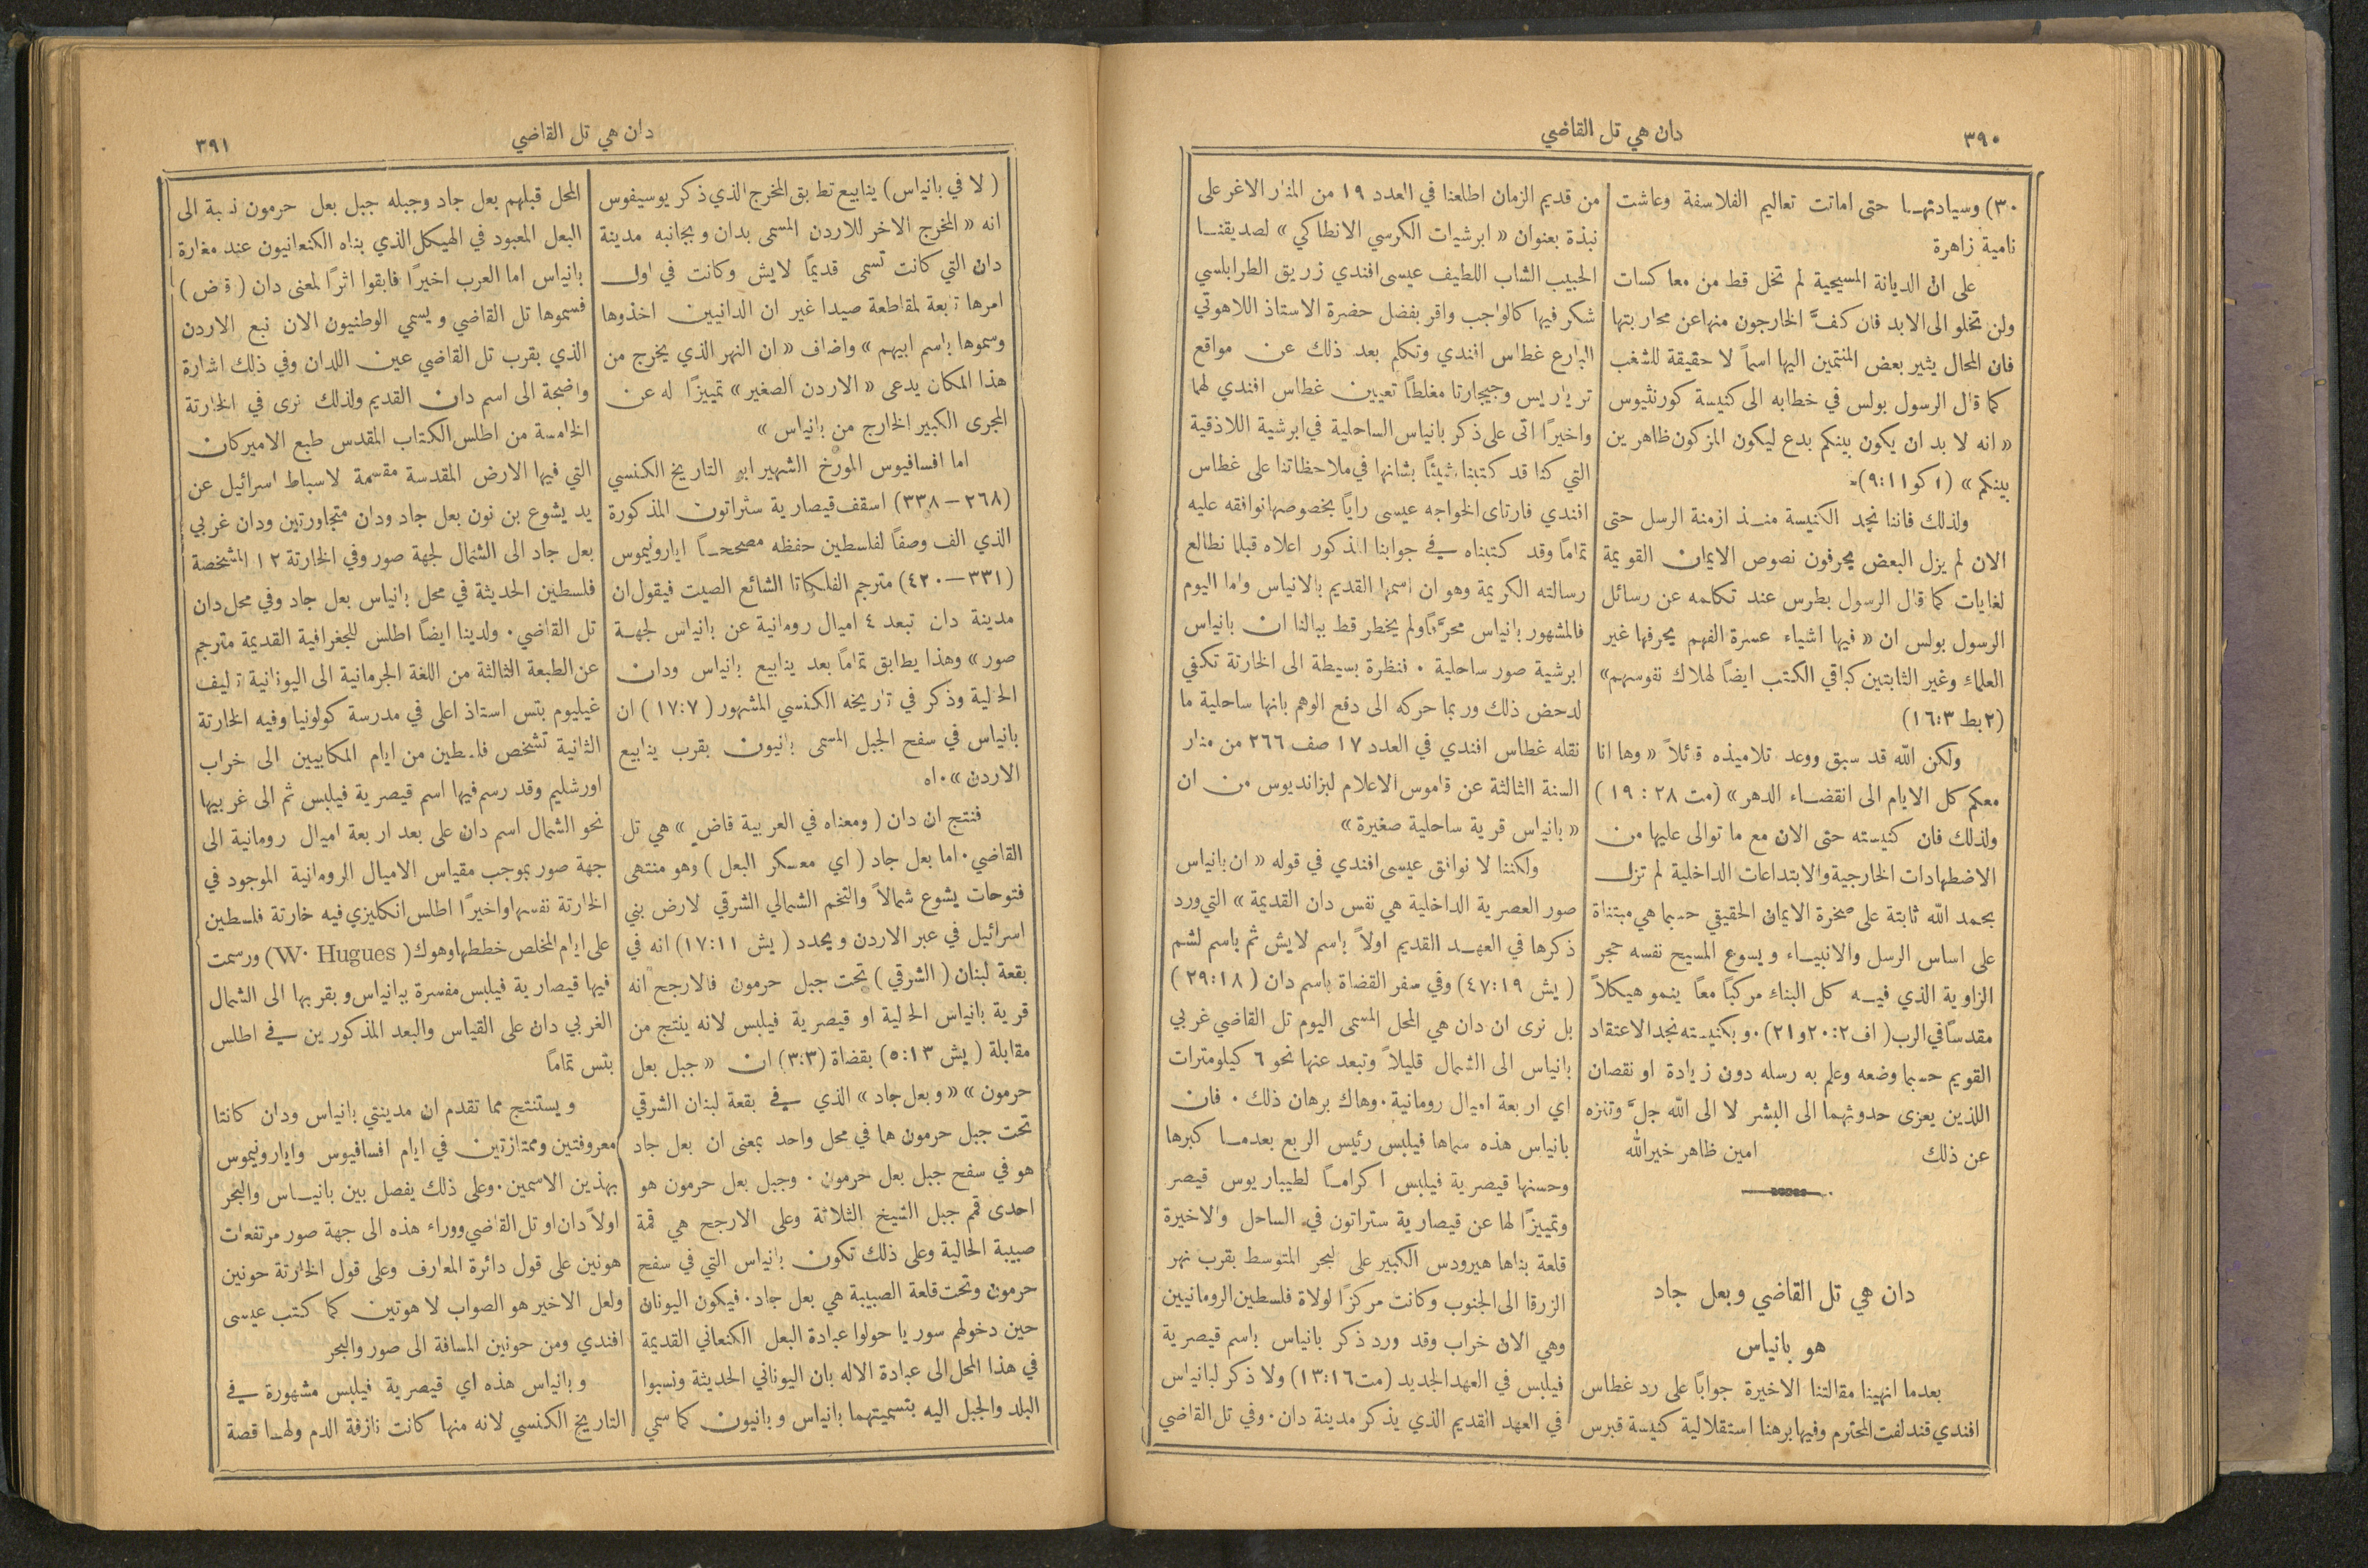 ٣٩٠
دان هي تل القاضي
٣٠) وسيادتهـا حتى اماتت تعاليم الفلاسفة وعاشت
نامية زاهرة
على ان الديانة المسيحية لم تخل قط من معاكسات
ولن تخلو الى الابد فان كفَّ الخارجون منها عن محاربتها
فان المحال يثير بعض المنتمين اليها اسماً لا حقيقة للشغب
كما قال الرسول بولس في خطابه الى كنيسة كورنثيوس
« انه لا بد ان يكون بينكم بدع ليكون المزكون ظاهرين
بينكم » (١ كو ١١:٩)-
ولذلك فاننا نجد الكنيسة منـذ ازمنة الرسل حتى
الان لم يزل البعض يحرفون نصوص الايمان القويمة
لغايات كما قال الرسول بطرس عند تكلمه عن رسائل
الرسول بولس ان « فيها اشياء عسرة الفهم يحرفها غير
العلماء وغير الثابتين كباقي الكتب ايضاً لهلاك نفوسهم»
(٢ بط ٣:١٦)
ولكن الله قد سبق ووعد تلاميذه قائلاً « وها انا
معكم كل الايام الى انقضـاء الدهر » (مت ٢٨ : ١٩ )
ولذلك فان كنيسته حتى الان مع ما توالى عليها من
الاضطهادات الخارجية والابتداعات الداخلية لم تزل
بحمد الله ثابتة على صخرة الايمان الحقيقي حسبما هي مبتناة
على اساس الرسل والانبيـاء ويسوع المسيح نفسه حجر
الزاوية الذي فيـه كل البناء مركباً معاً ينمو هيكلاً
مقدساً في الرب ( اف ٢:٢٠ و٢١) . وبكنيسته نجد الاعتقاد
القويم حسبما وضعه وعلم به رسله دون زيادة او نقصان
اللذين يعزى حدوثهما الى البشر لا الى الله جلَّ وتنزه
عن ذلك امين ظاهر خيرالله
دان هي تل القاضي وبعل جاد
هو بانياس
بعدما انهينا مقالتنا الاخيرة جواباً على رد غطاس
افندي قندلفت المحترم وفيها برهنا استقلالية كنيسة قبرس
من قديم الزمان اطلعنا في العدد ١٩ من المنار الاغر على
نبذة بعنوان « ابرشيات الكرسي الانطاكي » لصديقنـا
الحبيب الشاب اللطيف عيسى افندي زريق الطرابلسي
شكر فيها كالواجب واقر بفضل حضرة الاستاذ اللاهوتي
البارع غطاس افندي وتكلم بعد ذلك عن مواقع
تر ياريس وجيجارتا مغلطاً تعيين غطاس افندي لهما
واخيراً اتى على ذكر بانياس الساحلية في ابرشية اللاذقية
التي كنا قد كتبنا شيئاً بشانها في ملاحظاتنا على غطاس
افندي فارتاى الخواجه عيسى راياً بخصوصها نوافقه عليه
تماماً وقد كتبناه في جوابنا المذكور اعلاه قبلما نطالع
رسالته الكريمة وهو ان اسمها القديم بالانياس واما اليوم
فالمشهور بانياس محرَّفاً ولم يخطر قط ببالنا ان بانياس
ابرشية صور ساحلية . فنظرة بسيطة الى الخارتة تكفي
لدحض ذلك وربما حركه الى دفع الوهم بانها ساحلية ما
نقله غطاس افندي في العدد ١٧ صف ٢٦٦ من منار
السنة الثالثة عن قاموس الاعلام لبزانديوس من ان
« بانياس قرية ساحلية صغيرة »
ولكننا لا نوافق عيسى افندي في قوله « ان بانياس
صور العصرية الداخلية هي نفس دان القديمة » التي ورد
ذكرها في العهـد القديم اولاً باسم لايش ثم باسم لشم
( يش ١٩:٤٧) وفي سفر القضاة باسم دان (١٨:٢٩ )
بل نرى ان دان هي المحل المسمى اليوم تل القاضي غربي
بانياس الى الشمال قليلاً وتبعد عنها نحو ٦ كيلومترات
اي اربعة اميال رومانية . وهاك برهان ذلك . فان
بانياس هذه سماها فيلبس رئيس الربع بعدمـا كبرها
وحسنها قيصرية فيلبس اكرامـاً لطيباريوس قيصر
وتمييزاً لها عن قيصارية ستراتون في الساحل والاخيرة
قلعة بناها هيرودس الكبير على البحر المتوسط بقرب نهر
الزرقا الى الجنوب وكانت مركزاً لولاة فلسطين الرومانيين
وهي الان خراب وقد ورد ذكر بانياس باسم قيصرية
فيلبس في العهد الجديد (مت ١٦:١٣) ولا ذكر لبانياس
في العهد القديم الذي يذكر مدينة دان . وفي تل القاضي
دان هي تل القاضي
٣٩١
( لا في بانياس ) ينابيع تطابق المخرج الذي ذكر يوسيفوس
انه « المخرج الاخر للاردن المسمى بدان وبجانبه مدينة
دان التي كانت تسمى قديماً لايش وكانت في اول
امرها تابعة لمقاطعة صيدا غير ان الدانيين اخذوها
وسموها باسم ابيهم » واضاف « ان النهر الذي يخرج من
هذا المكان يدعى « الاردن الصغير » تمييزاً له عن
المجرى الكبير الخارج من بانياس »
اما افسافيوس المورخ الشهير ابو التاريخ الكنسي
(٢٦٨ — ٣٣٨) اسقف قيصارية ستراتون المذكورة
الذي الف وصفاً لفلسطين حفظه مصححـاً ايارونيموس
(٣٣١—٤٢٠) مترجم الفلكاتا الشائع الصيت فيقول ان
مدينة دان تبعد ٤ اميال رومانية عن بانياس لجهـة
صور» وهذا يطابق تماماً بعد ينابيع بانياس ودان
الحالية وذكر في تاريخه الكنسي المشهور (٧:١٧ ) ان
بانياس في سفح الجبل المسمى بانيون بقرب ينابيع
الاردن » . اه
فنتج ان دان ( ومعناه في العربية قاض » هي تل
القاضي . اما بعل جاد ( اي معسكر البعل ) وهو منتهى
فتوحات يشوع شمالاً والتخم الشمالي الشرقي لارض بني
اسرائيل في عبر الاردن ويحدد ( يش ١١:١٧) انه في
بقعة لبنان ( الشرقي ) تحت جبل حرمون فالارجح انه
قرية بانياس الحالية او قيصرية فيلبس لانه ينتج من
مقابلة ( يش ١٣:٥) بقضاة (٣:٣) ان « جبل بعل
حرمون » « وبعل جاد » الذي في بقعة لبنان الشرقي
تحت جبل حرمون هما في محل واحد بمعنى ان بعل جاد
هو في سفح جبل بعل حرمون . وجبل بعل حرمون هو
احدى قمم جبل الشيخ الثلاثة وعلى الارجح هي قمة
صبيبة الحالية وعلى ذلك تكون بانياس التي في سفح
حرمون وتحت قلعة الصبيبة هي بعل جاد . فيكون اليونان
حين دخولهم سوريا حولوا عبادة البعل الكنعاني القديمة
في هذا المحل الى عبادة الاله بان اليوناني الحديثة ونسبوا
البلد والجبل اليه بتسميتهما بانياس وبانيون كما سمي
المحل قبلهم بعل جاد وجبله جبل بعل حرمون نسبة الى
البعل المعبود في الهيكل الذي بناه الكنعانيون عند مغارة
بانياس اما العرب اخيراً فابقوا اثراً لمعنى دان ( قاض )
فسموها تل القاضي ويسمي الوطنيون الان نبع الاردن
الذي بقرب تل القاضي عين اللدان وفي ذلك اشارة
واضحة الى اسم دان القديم ولذلك نرى في الخارتة
الخامسة من اطلس الكتاب المقدس طبع الاميركان
التي فيها الارض المقدسة مقسمة لاسباط اسرائيل عن
يد يشوع بن نون بعل جاد ودان متجاورتين ودان غربي
بعل جاد الى الشمال لجهة صور وفي الخارتة ١٢ المشخصة
فلسطين الحديثة في محل بانياس بعل جاد وفي محل دان
تل القاضي . ولدينا ايضاً اطلس للجغرافية القديمة مترجم
عن الطبعة الثالثة من اللغة الجرمانية الى اليونانية تاليف
غيليوم بتس استاذ اعلى في مدرسة كولونيا وفيه الخارتة
الثانية تشخص فلسطين من ايام المكابيين الى خراب
اورشليم وقد رسم فيها اسم قيصرية فيلبس ثم الى غربيها
نحو الشمال اسم دان على بعد اربعة اميال رومانية الى
جهة صور بموجب مقياس الاميال الرومانية الموجود في
الخارتة نفسها واخيراً اطلس انكليزي فيه خارتة فلسطين
على ايام المخلص خططها وهوك ( W. Hugues ) ورسمت
فيها قيصارية فيلبس مفسرة ببانياس وبقربها الى الشمال
الغربي دان على القياس والبعد المذكورين في اطلس
بتس تماماً
ويستنتج مما تقدم ان مدينتي بانياس ودان كانتا
معروفتين وممتازتين في ايام افسافيوس وايارونيموس
بهذين الاسمين . وعلى ذلك يفصل بين بانيـاس والبحر
اولاً دان او تل القاضي ووراء هذه الى جهة صور مرتفعات
هونين على قول دائرة المعارف وعلى قول الخارتة حونين
ولعل الاخير هو الصواب لا هوتين كما كتب عيسى
افندي ومن حونين المسافة الى صور والبحر
وبانياس هذه اي قيصرية فيلبس مشهورة في
التاريخ الكنسي لانه منها كانت نازفة الدم ولهـا قصة